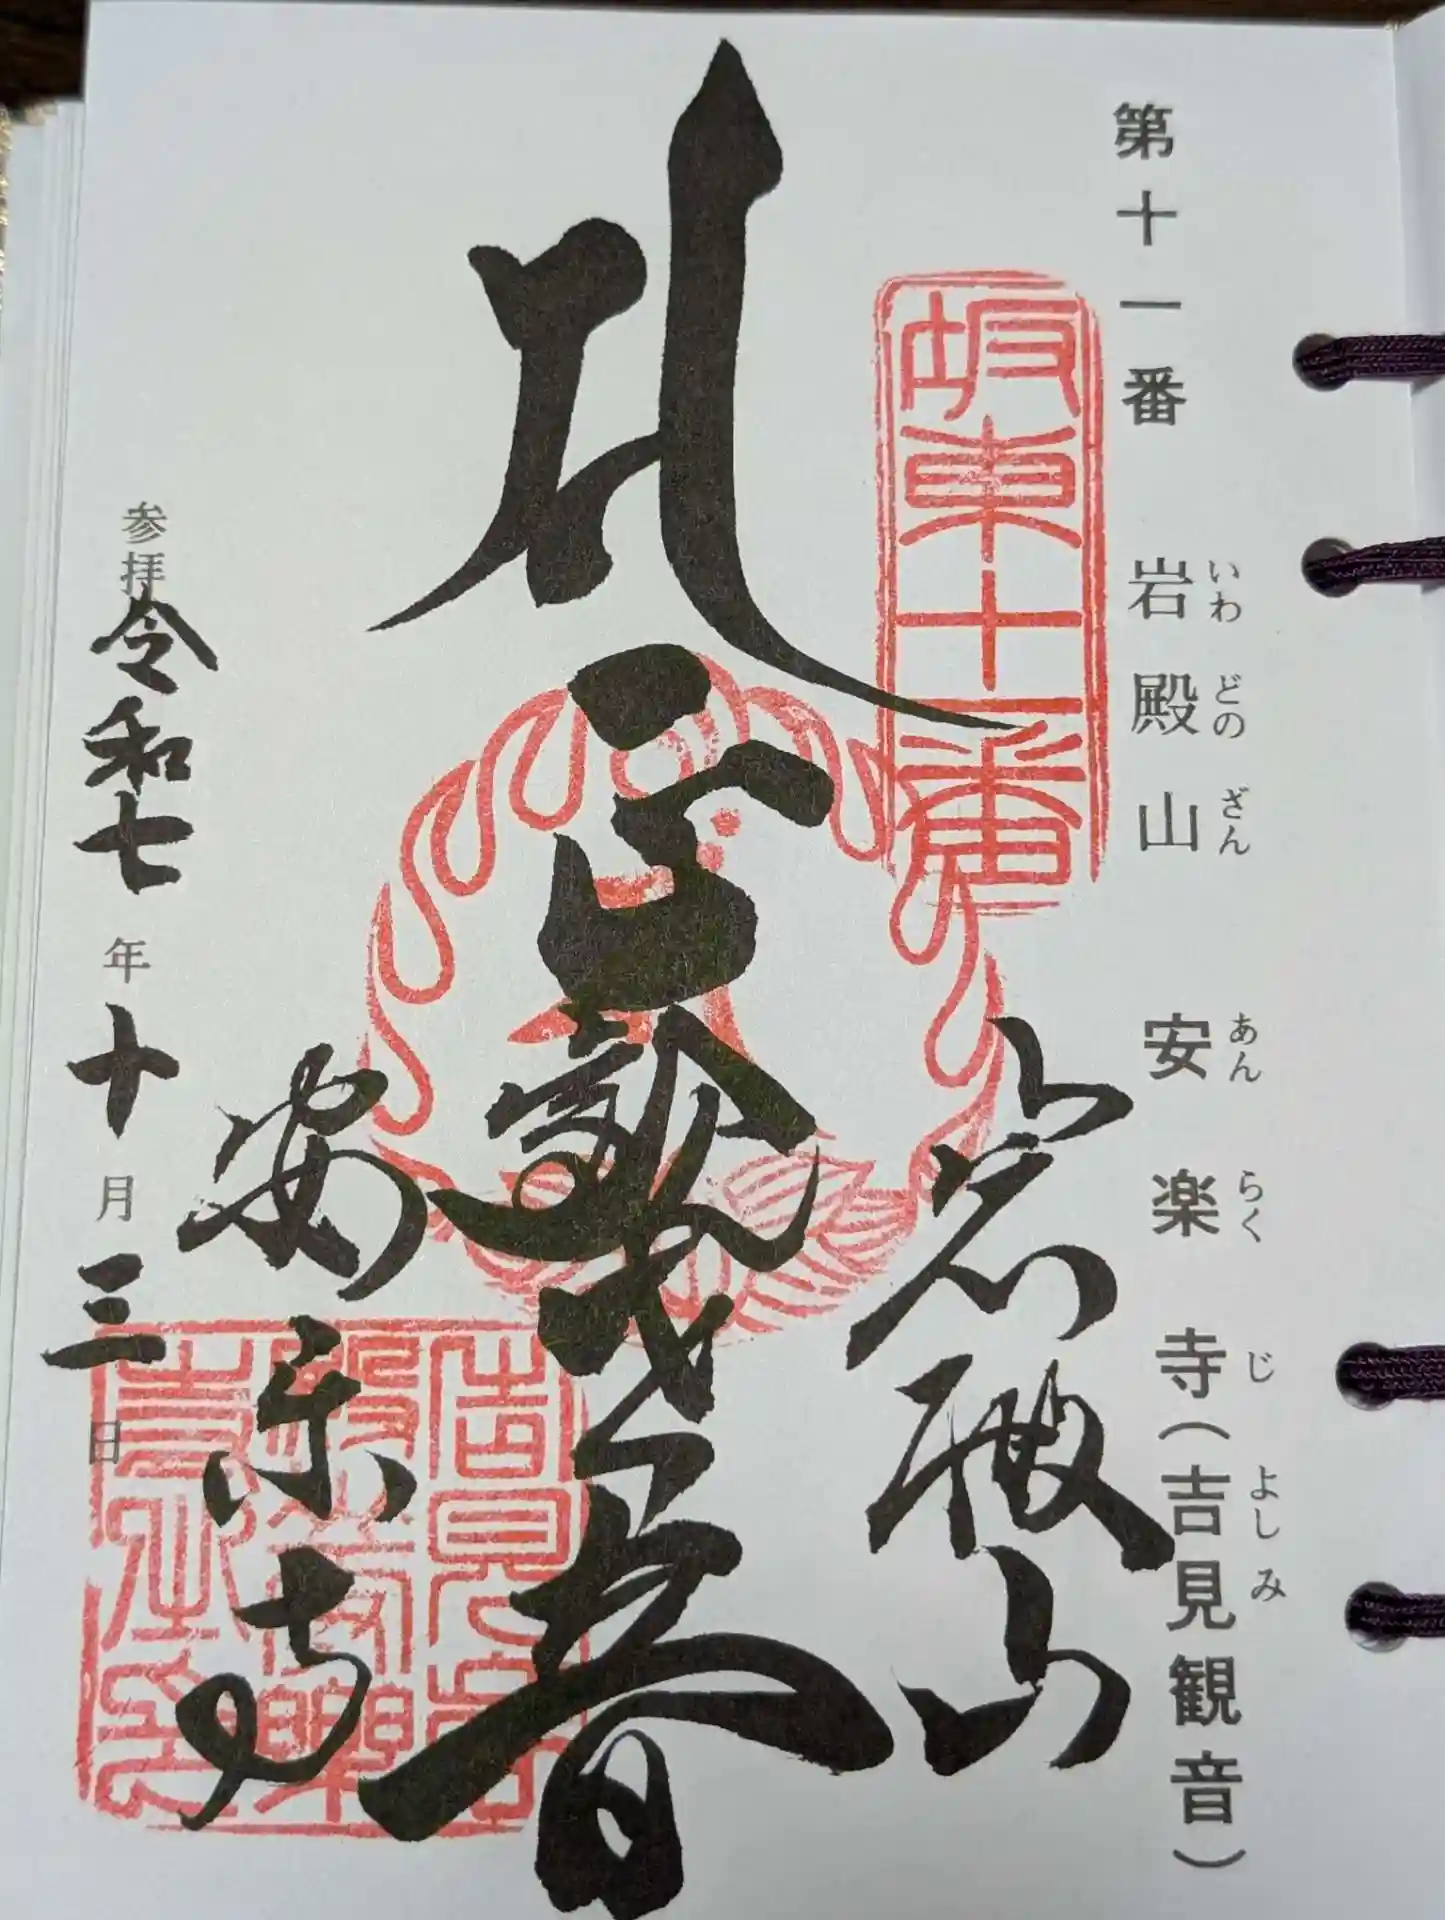 第十一番 岩殿山 安楽寺(吉見観音)
いわ どの ざん あん らく じ よし み
坂東十一番
岩殿山
正観世音
安楽寺
参拝 令和七年十月三日